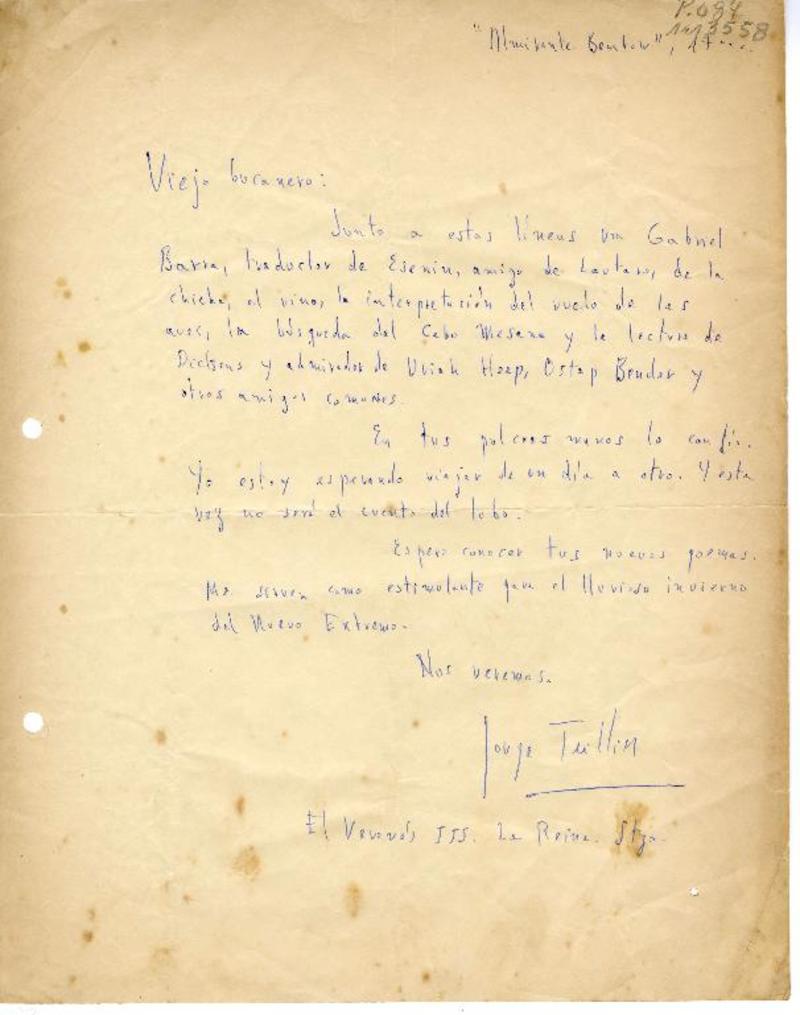 P.084
"Almirante Benbow", 17....
Viejo bucanero:
Junto a estas líneas va Gabriel
Barra, traductor de Esenin, amigo de Lautaro, de la
chicha, el vino, la interpretación del vuelo de las
aves, la búsqueda del Cabo Mesana y la lectura de
Dickens y admirador de Uriah Heep, Ostap Bender y
otros amigos comunes.
En tus manos lo confío.
Yo estoy esperando viajar de un día a otro. Y esta
vez no será el cuento del lobo.
Espero conocer tus nuevos poemas.
Me sirven como estimulante para el lluvioso invierno
del Nuevo Extremo.
Nos veremos.
Jorge Teillier
La Reina. Stgo.